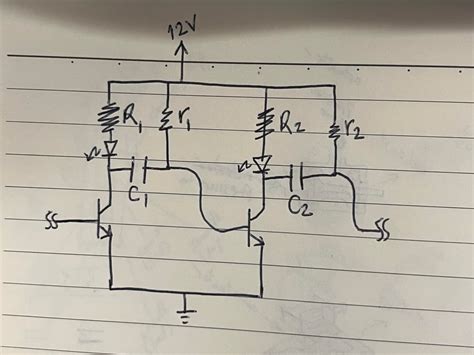 12V
R1 r1 R2 r2
C1 C2
SS SS